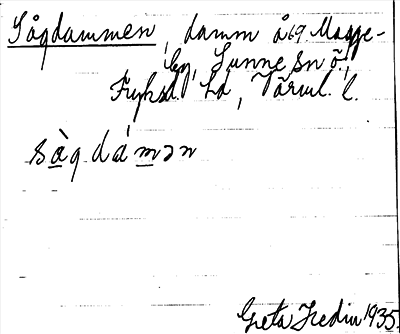 Sågdammen, damm å 169 Magge-
by, Sunne sn ö.,
Fryksd. hd, Värml. l.
sàgdámən
Greta Hedin 1935.